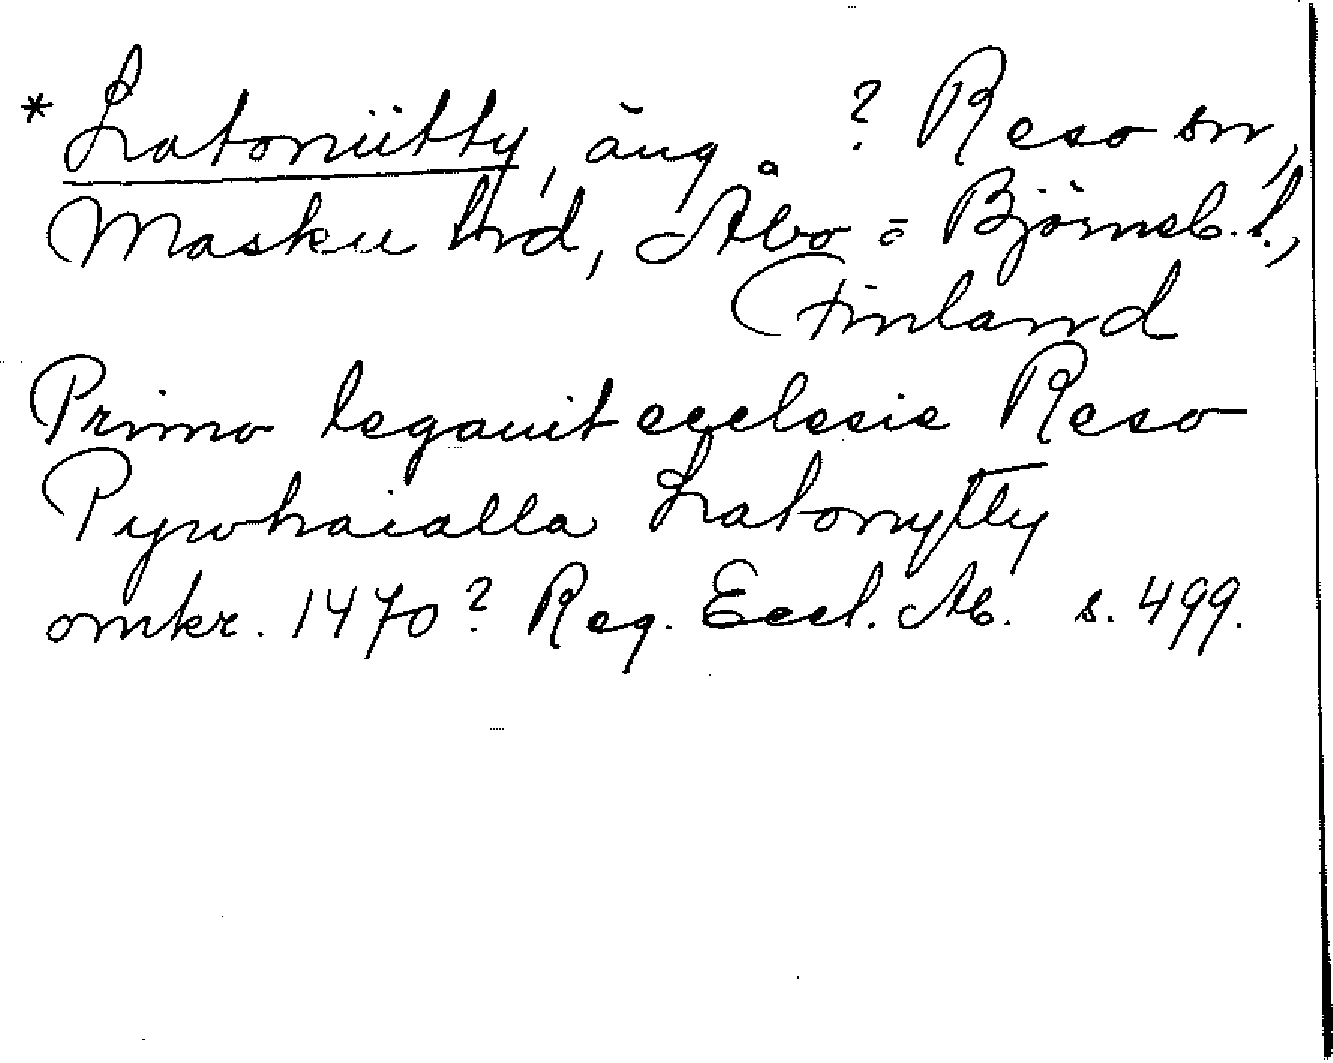 * Latoniitty, äng. ? Reso sn,
Masku hrd, Åbo = Björneb. l.,
Finland
Primo legauit ecclesie Reso
Pyrwhaialla Latonytty
omkr. 1470? Reg. Eccl. Ab. s. 499.